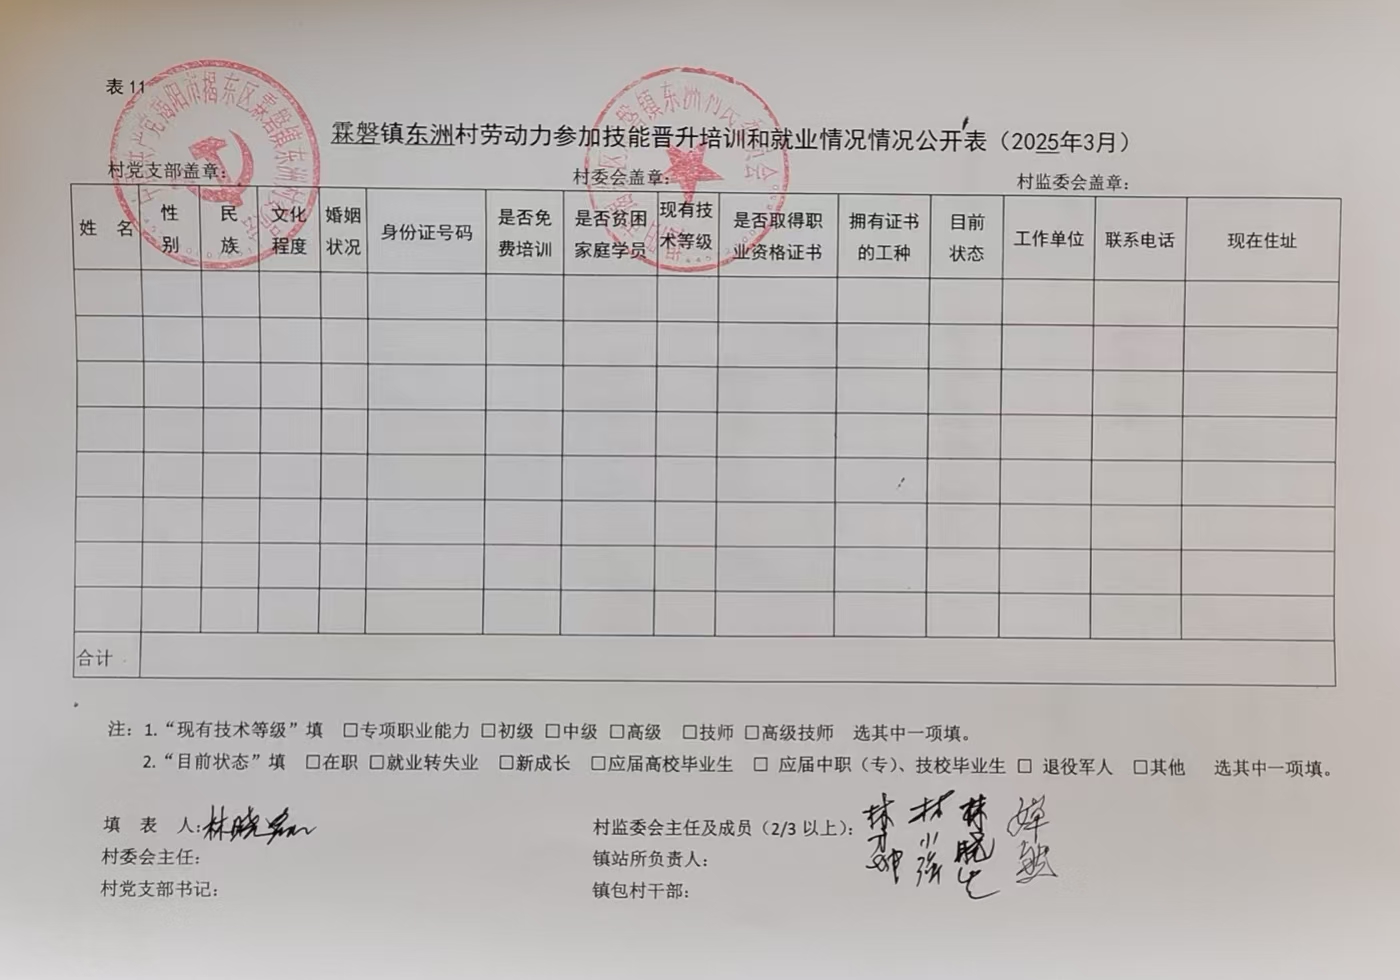 表 11
霖磐镇东洲村劳动力参加技能晋升培训和就业情况情况公开表（2025年3月）
村党支部盖章： 村委会盖章： 村监委会盖章：
姓 名 性别 民族 文化程度 婚姻状况 身份证号码 是否免费培训 是否贫困家庭学员 现有技术等级 是否取得职业资格证书 拥有证书的工种 目前状态 工作单位 联系电话 现在住址
合计
注：1.“现有技术等级”填 □专项职业能力 □初级 □中级 □高级 □技师 □高级技师 选其中一项填。
2.“目前状态”填 □在职 □就业转失业 □新成长 □应届高校毕业生 □ 应届中职（专）、技校毕业生 □ 退役军人 □其他 选其中一项填。
填 表 人：林晓 村监委会主任及成员（2/3 以上）：林 林小强 林晓
村委会主任： 镇站所负责人：
村党支部书记： 镇包村干部：